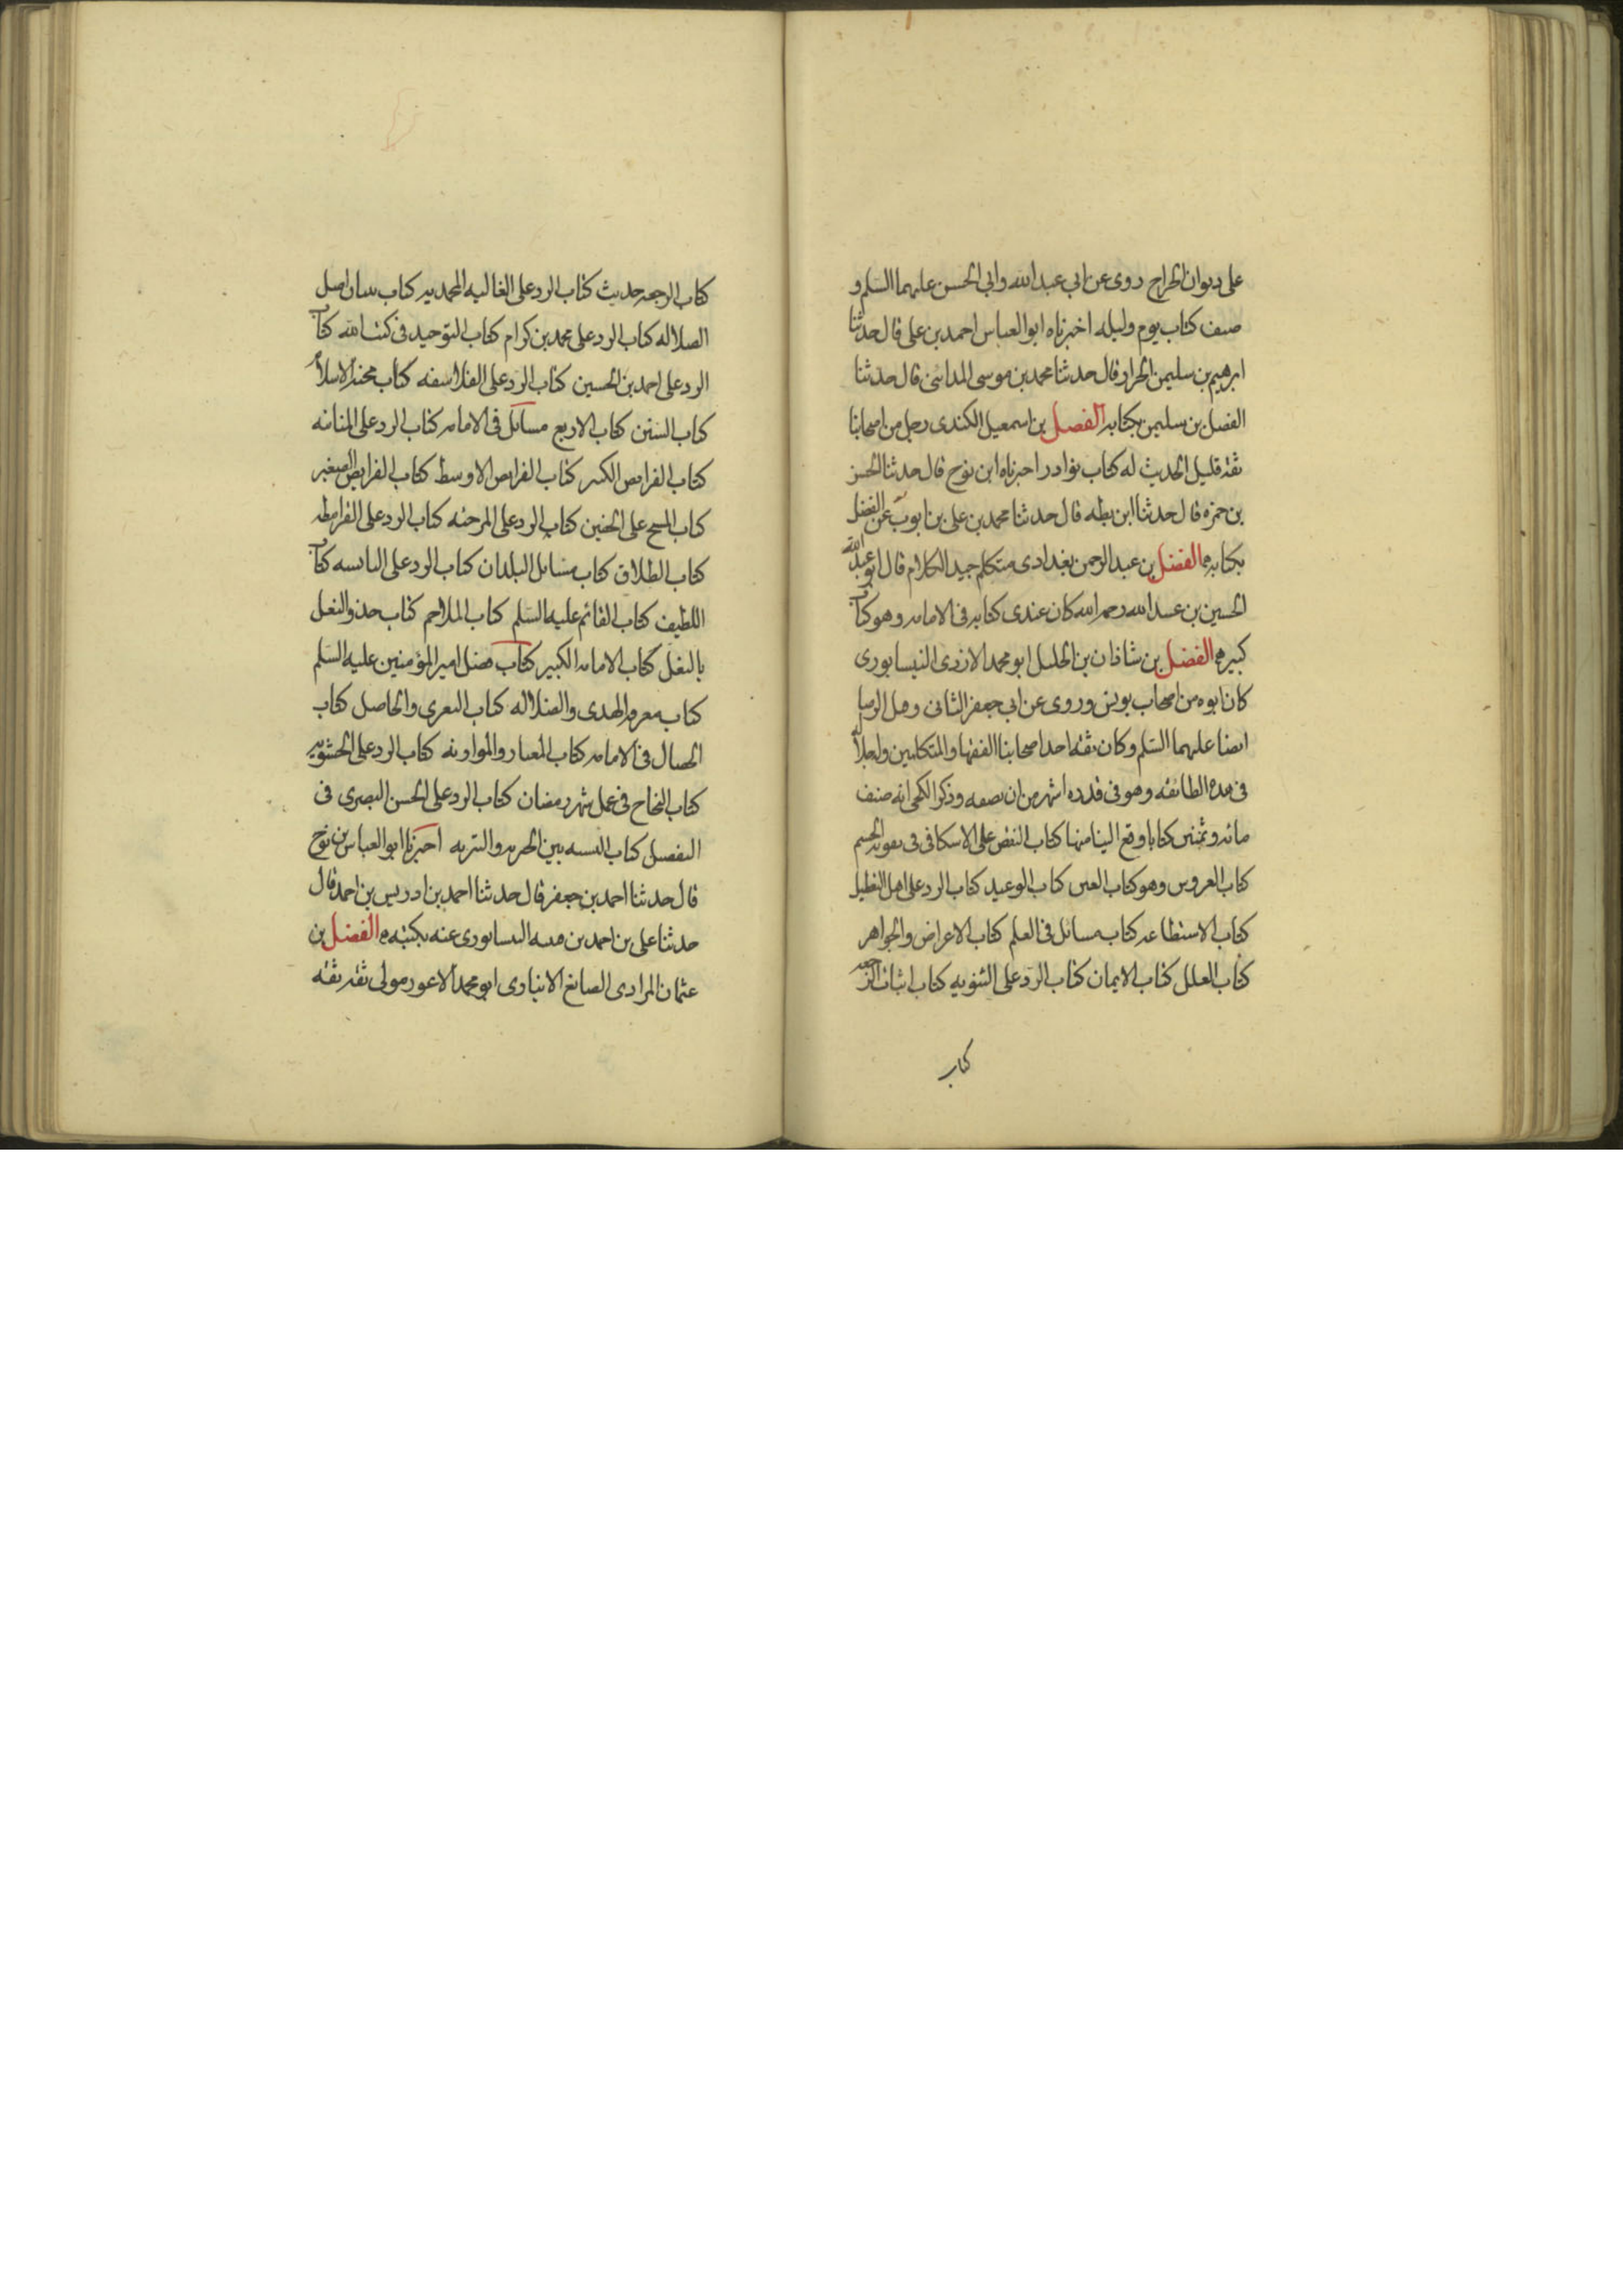 على ديوان الخراج روى عن ابي عبد الله وابي الحسن عليهما السلم و
صنف كتاب يوم وليله اخبرناه ابو العباس احمد بن على قال حدثنا
ابرهيم بن سليمن الخراز قال حدثنا محمد بن موسى المدائنى قال حدثنا
الفضل بن سليمن بكتابه الفضل بن اسمعيل الكندى رجل من اصحابنا
ثقة قليل الحديث له كتاب نوادر اخبرناه ابن نوح قال حدثنا الحسن
بن حمزه قال حدثنا ابن بطه قال حدثنا محمد بن على بن ايوب عن الفضل
بكتابه الفضل بن عبد الرحمن بغدادى متكلم جيد الكلام قال ابو عبد الله
الحسين بن عبيد الله رحمه الله كان عندى كتابه فى الامامه وهو كتاب
كبير الفضل بن شاذان بن الخليل ابو محمد الازدى النيسابورى
كان ابوه من اصحاب يونس وروى عن ابي جعفر الثانى وقيل الرضا
ايضا عليهما السلم وكان ثقه احد اصحابنا الفقها والمتكلمين وله جلالة
فى هذه الطائفه وهو فى قدره اشهر من ان نصفه وذكر الكنجى انه صنف
مائه وثمنين كتابا وقع الينا منها كتاب النقض على الاسكافى فى تقويه الجسم
كتاب العروس وهو كتاب العين كتاب الوعيد كتاب الرد على اهل التعطيل
كتاب الاستطاعه كتاب مسائل فى العلم كتاب الاعراض والجواهر
كتاب العلل كتاب الايمان كتاب الرد على الثنويه كتاب اثبات الرجعه
كتاب
كتاب الرجعه حديث كتاب الرد على الغاليه المحمديه كتاب تبيان اصل
الضلاله كتاب الرد على محمد بن كرام كتاب التوحيد فى كتب الله كتاب
الرد على احمد بن الحسين كتاب الرد على الفلاسفه كتاب محنة الاسلام
كتاب السنن كتاب الاربع مسائل فى الامامه كتاب الرد على المنانيه
كتاب الفرايض الكبير كتاب الفرايض الاوسط كتاب الفرايض الصغير
كتاب المسح على الخفين كتاب الرد على المرجئه كتاب الرد على القرامطه
كتاب الطلاق كتاب مسائل البلدان كتاب الرد على البائسه كتاب
اللطيف كتاب القائم عليه السلم كتاب الملاحم كتاب حذو النعل
بالنعل كتاب الامامه الكبير كتاب فضل امير المؤمنين عليه السلم
كتاب معرفه الهدى والضلاله كتاب التعرى والحاصل كتاب
الخصال فى الامامه كتاب المعيار والموازنه كتاب الرد على الحشويه
كتاب النجاح فى عمل شهر رمضان كتاب الرد على الحسن البصرى فى
التفضيل كتاب النسبه بين الجبريه والبتريه اخبرنا ابو العباس بن نوح
قال حدثنا احمد بن جعفر قال حدثنا احمد بن ادريس بن احمد قال
حدثنا على بن احمد بن قتيبه النيسابورى عنه بكتبه الفضل بن
عثمان المرادى الصائغ الانبارى ابو محمد الاعور مولى ثقه ثقه